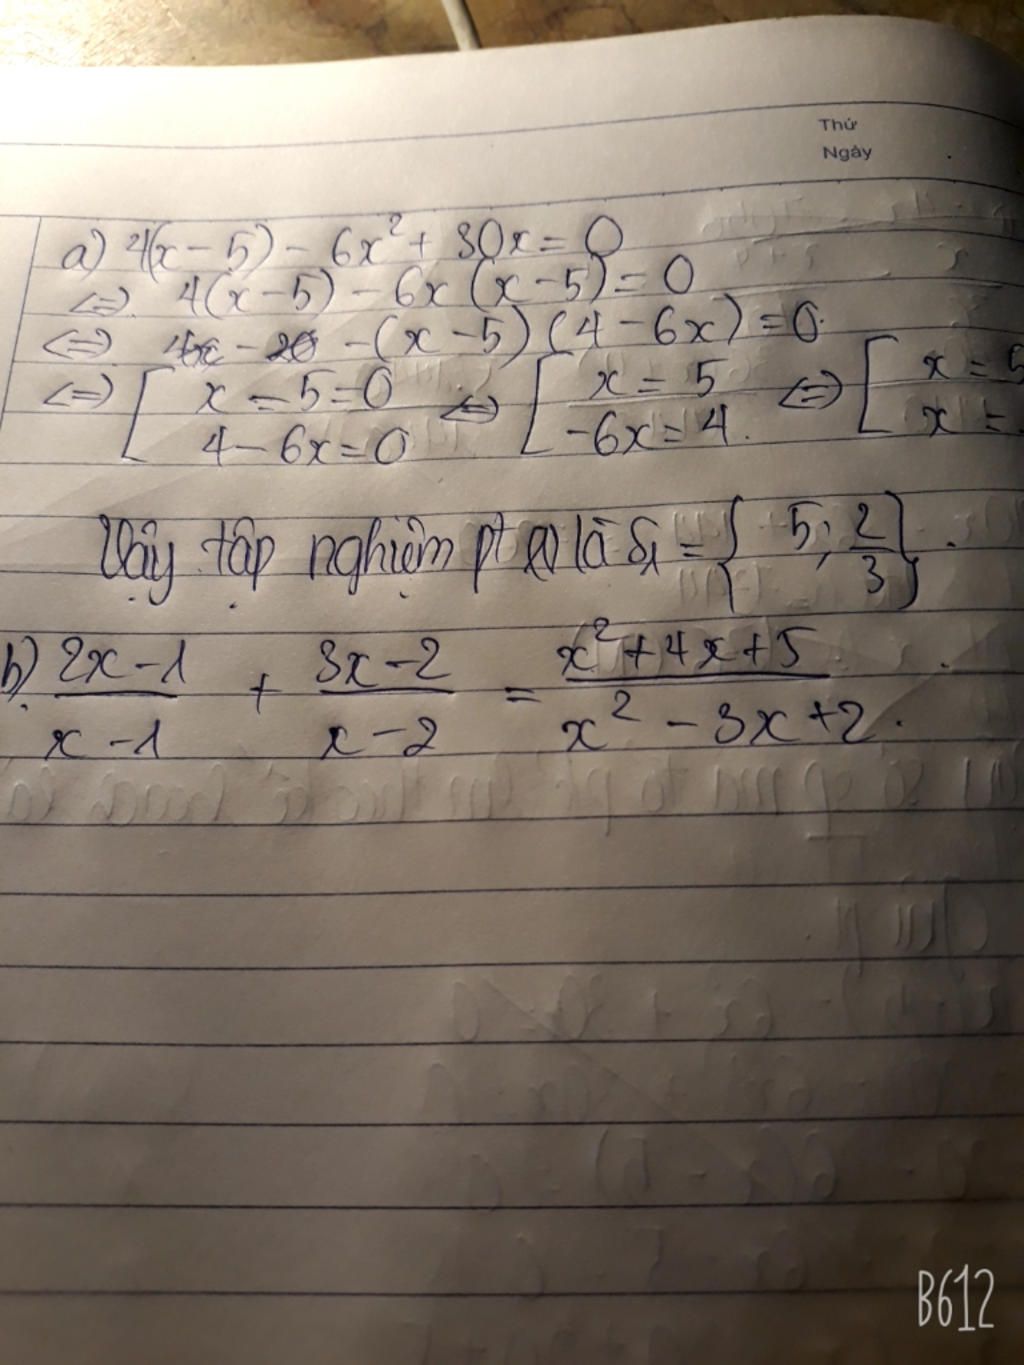 Thứ
Ngày
a) 4(x – 5) – 6x² + 30x = 0
<=> 4(x – 5) – 6x (x – 5) = 0
<=> – (x – 5) (4 – 6x) = 0.
<=> [ x – 5 = 0 <=> [ x = 5 <=> [ x = 5
4 – 6x = 0 -6x = 4. x =
Vậy tập nghiệm pt là S₁ = { 5; 2/3 }.
b) (2x – 1)/(x – 1) + (3x – 2)/(x – 2) = (x² + 4x + 5)/(x² – 3x + 2).
B612